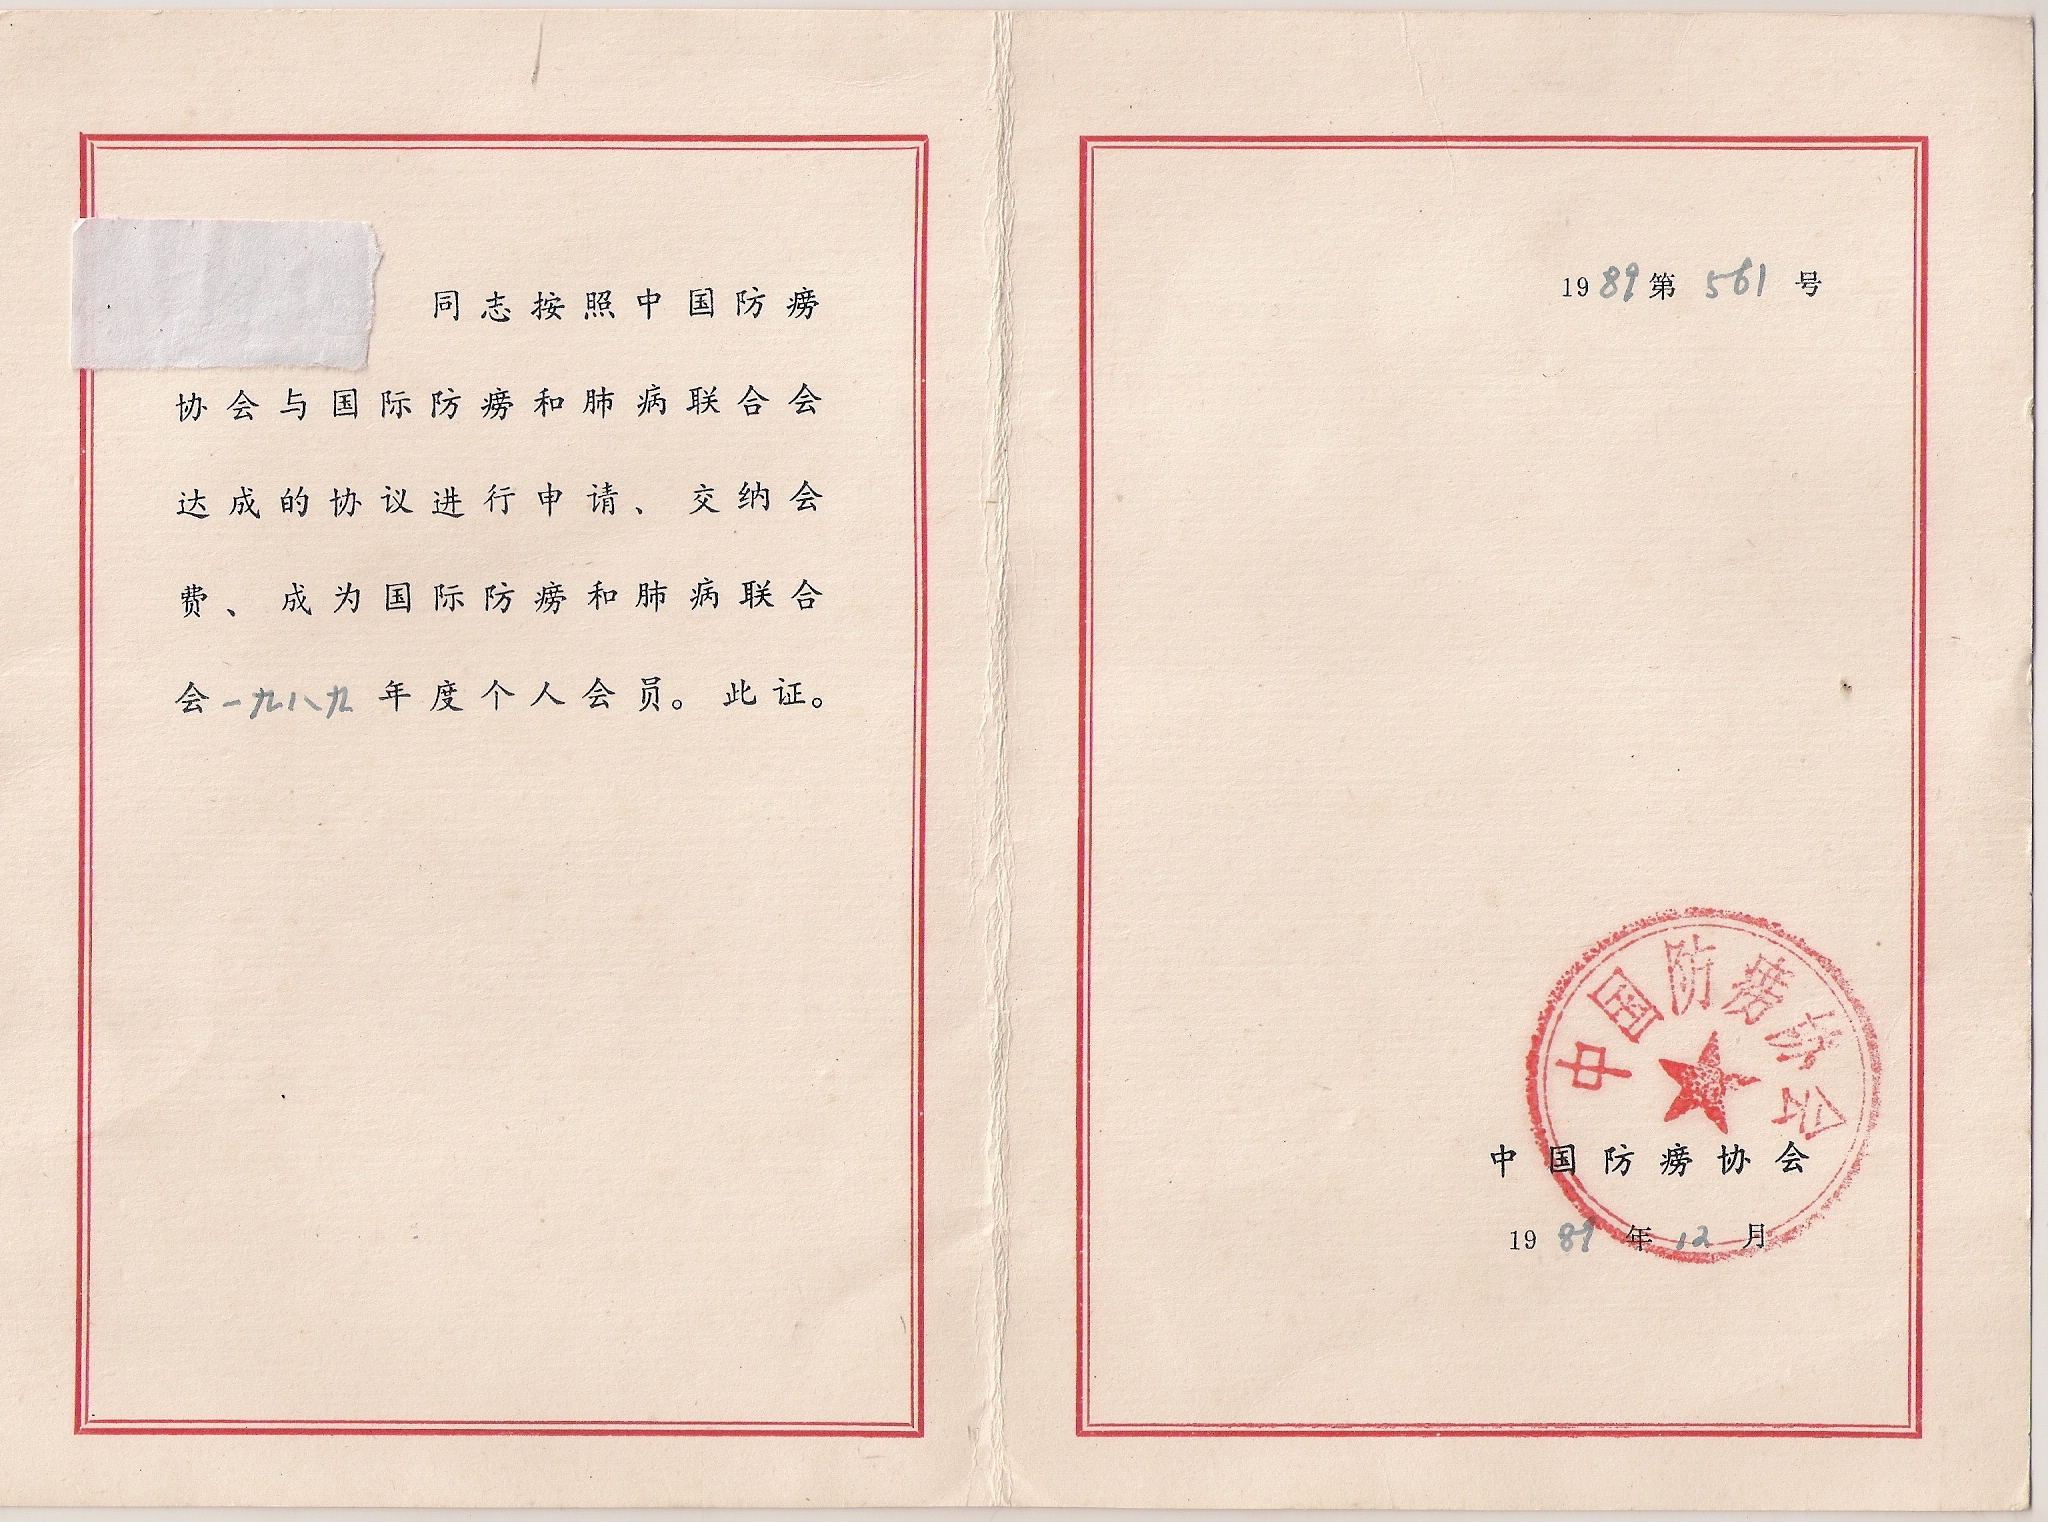 同志按照中国防痨
协会与国际防痨和肺病联合会
达成的协议进行申请、交纳会
费、成为国际防痨和肺病联合
会一九八九年度个人会员。此证。
1989第561号
中国防痨协会
中国防痨协会
1989年12月